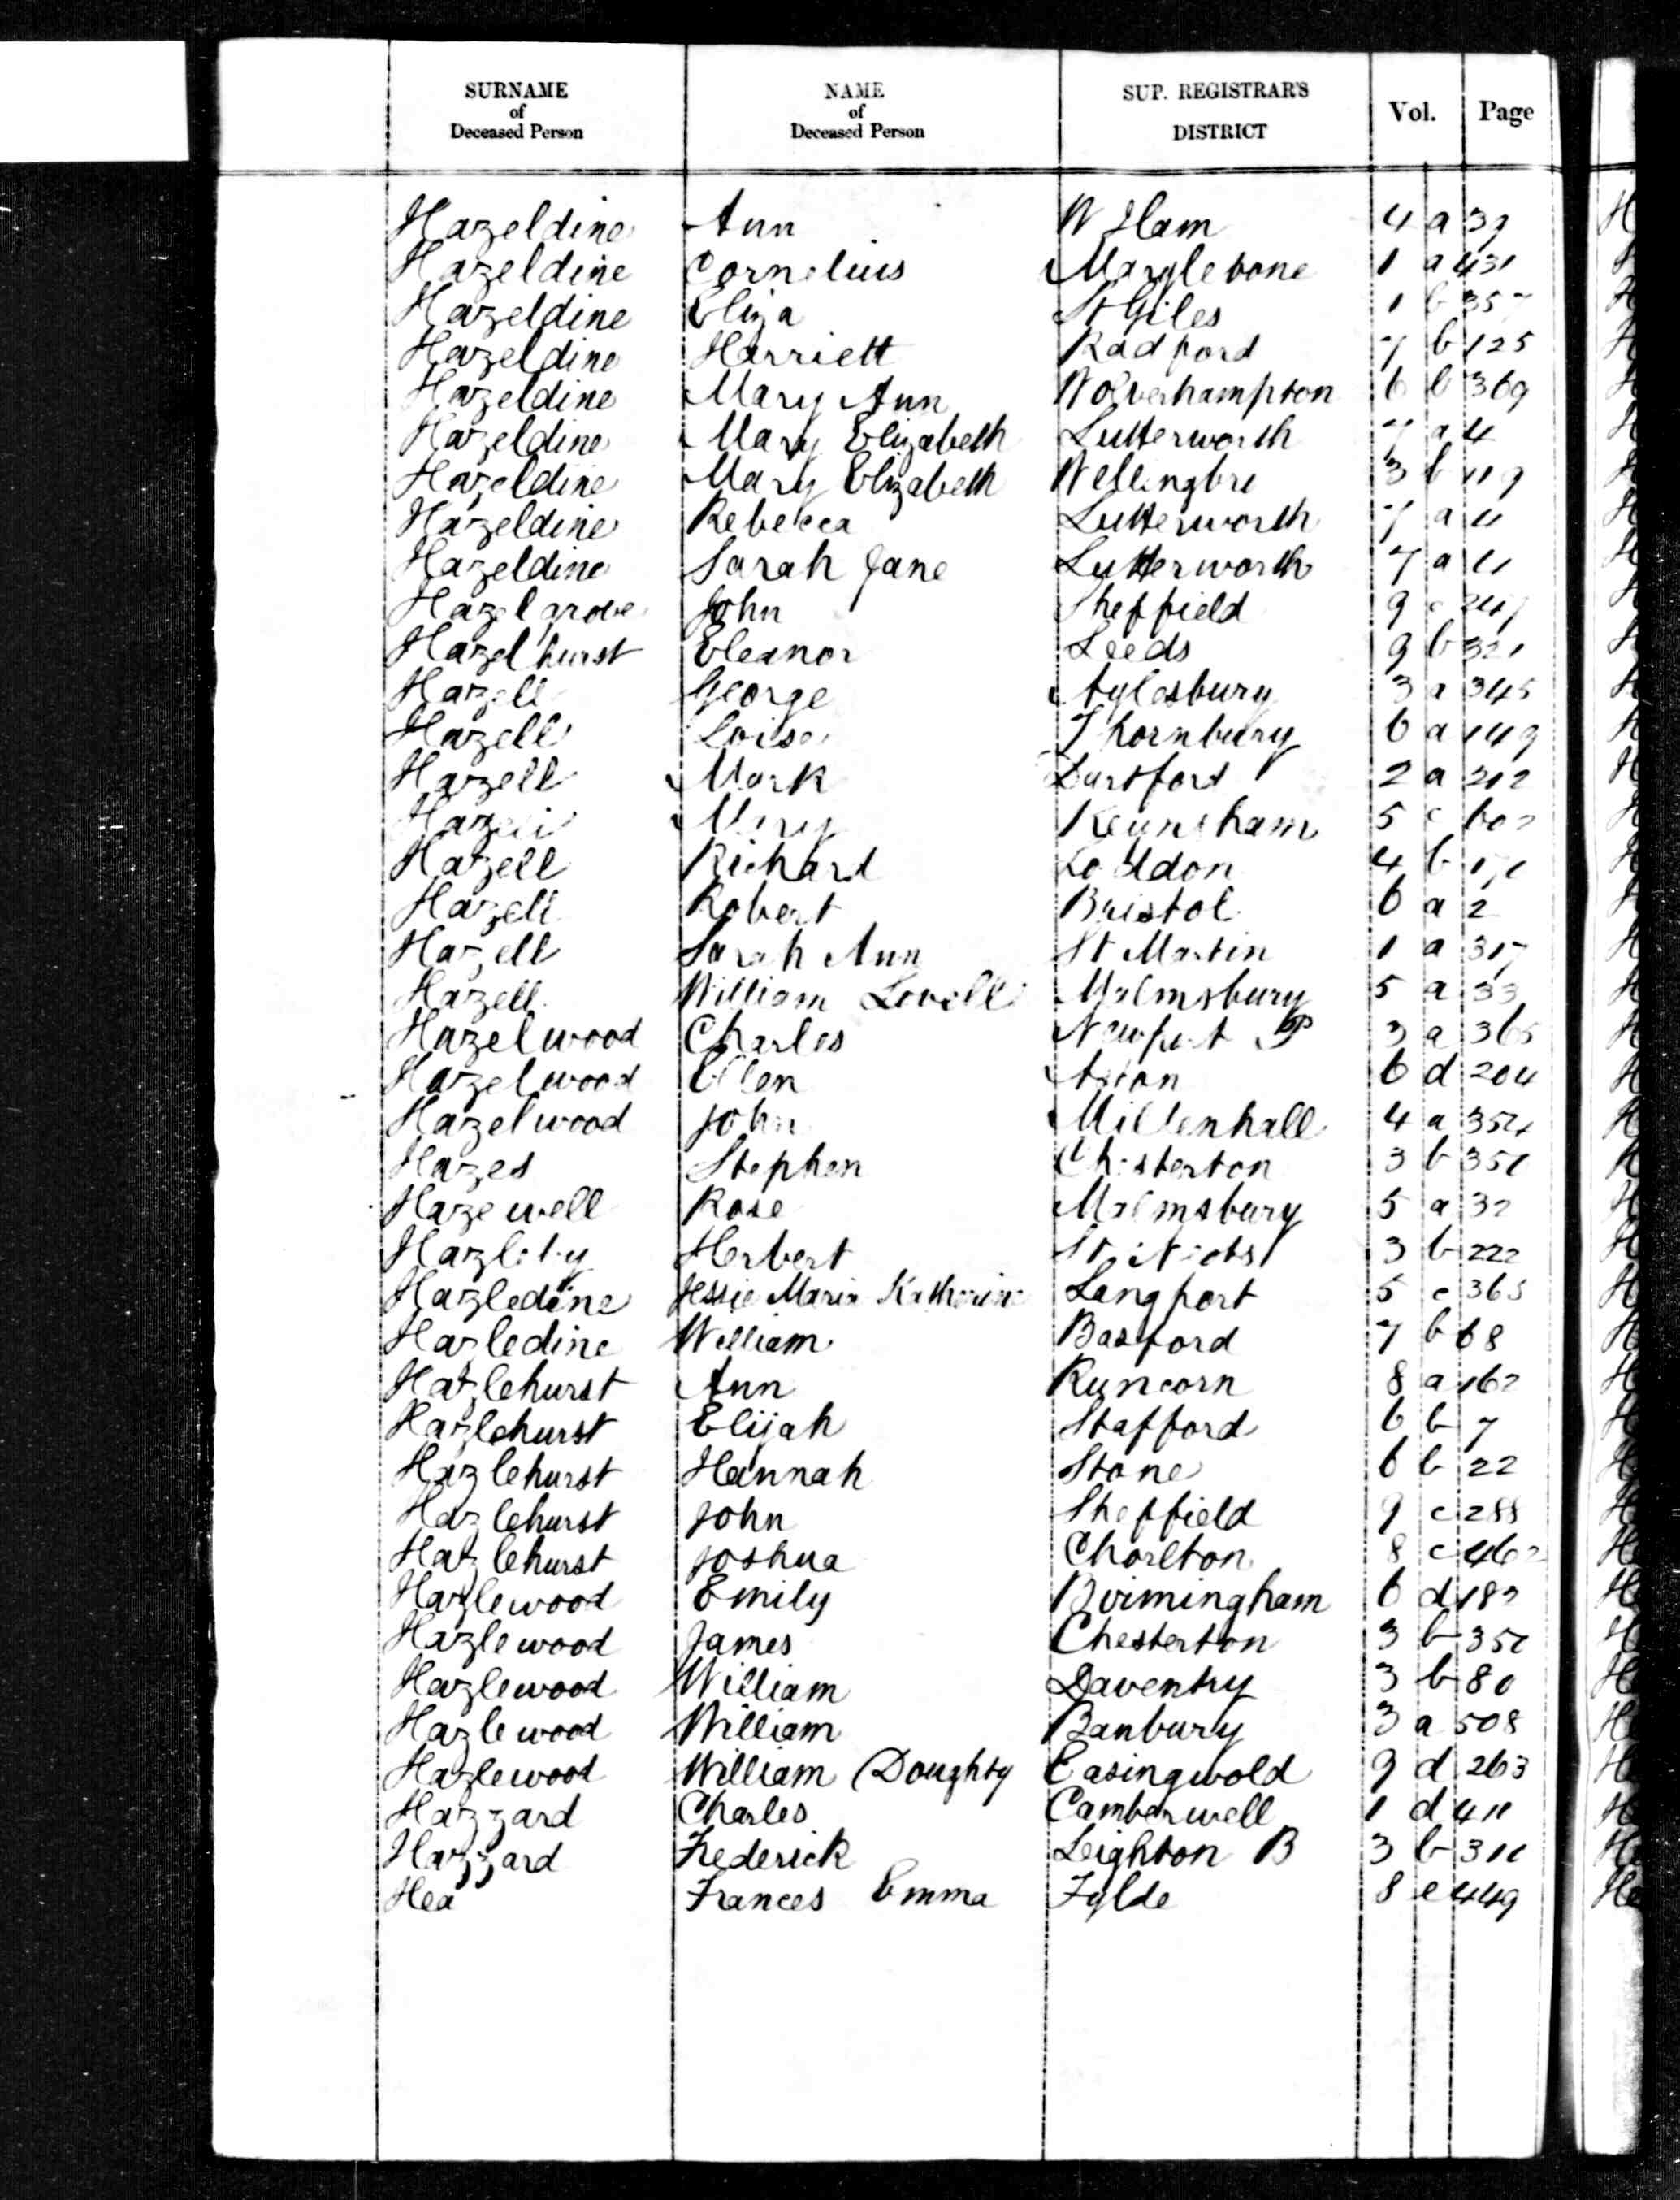 SURNAME of Deceased Person NAME of Deceased Person SUP. REGISTRAR'S DISTRICT Vol. Page
Hazeldine Ann W Ham 4 a 39
Hazeldine Cornelius Marylebone 1 a 431
Hazeldine Eliza St Giles 1 b 357
Hazeldine Harriett Radford 7 b 125
Hazeldine Mary Ann Wolverhampton 6 b 369
Hazeldine Mary Elizabeth Lutterworth 7 a 4
Hazeldine Mary Elizabeth Wellingbro 3 b 119
Hazeldine Rebecca Lutterworth 7 a 11
Hazeldine Sarah Jane Lutterworth 7 a 11
Hazelgrove John Sheffield 9 c 247
Hazelhurst Eleanor Leeds 9 b 321
Hazell George Aylesbury 3 a 345
Hazell Loisa Thornbury 6 a 149
Hazell Mark Dartford 2 a 212
Hazell Mary Keynsham 5 c 602
Hazell Richard Loddon 4 b
Hazell Robert Bristol 6 a 2
Hazell Sarah Ann St Martin 1 a 317
Hazell William Lovell Malmsbury 5 a 33
Hazelwood Charles Newport P 3 a 365
Hazelwood Ellen Aston 6 d 204
Hazelwood John Mildenhall 4 a 354
Hazes Stephen Chesterton 3 b 350
Hazewell Rose Malmsbury 5 a 32
Hazleby Herbert St Neots 3 b 222
Hazledine Jessie Maria Katherine Langport 5 c 365
Hazledine William Basford 7 b 68
Hazlehurst Ann Runcorn 8 a 162
Hazlehurst Elijah Stafford 6 b 7
Hazlehurst Hannah Stone 6 b 22
Hazlehurst John Sheffield 9 c 288
Hazlehurst Joshua Chorlton 8 c 462
Hazlewood Emily Birmingham 6 d 182
Hazlewood James Chesterton 3 b 350
Hazlewood William Daventry 3 b 80
Hazlewood William Banbury 3 a 508
Hazlewood William Doughty Easingwold 9 d 263
Hazzard Charles Camberwell 1 d 411
Hazzard Frederick Leighton B 3 b 310
Hea Frances Emma Fylde 8 e 449